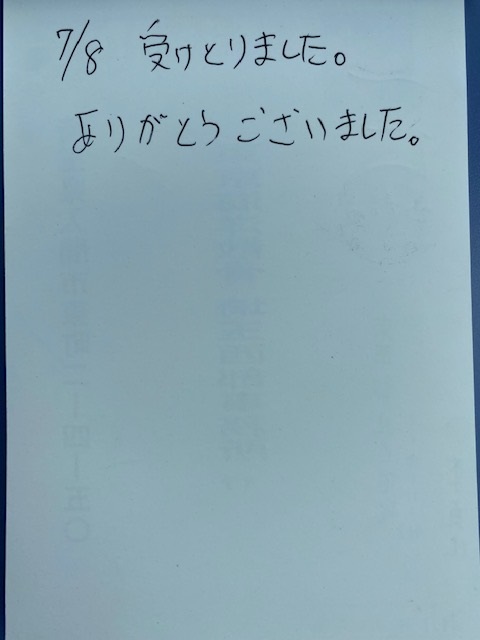 7/8 受けとりました。
ありがとうございました。